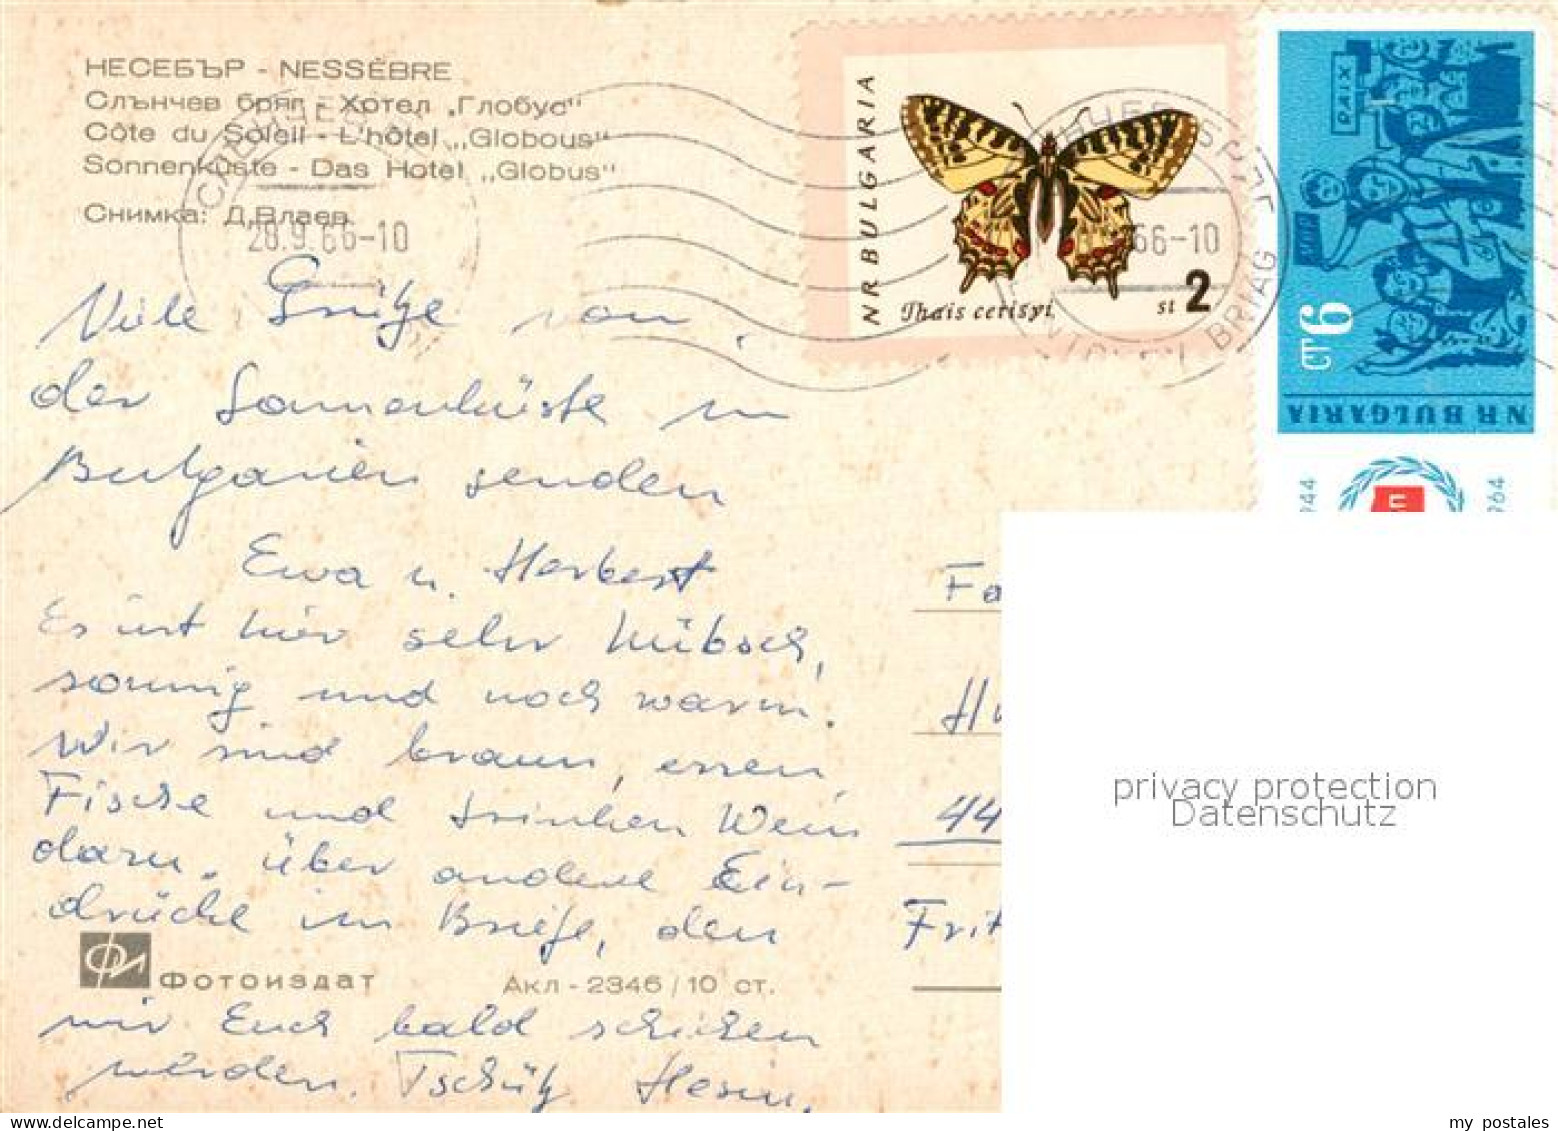 НЕСЕБЪР - NESSÈBRE
Слънчев бряг - Хотел „Глобус"
Côte du Soleil - L'hôtel „Globous"
Sonnenküste - Das Hotel „Globus"
Снимка: Д.Влаев
28.9.66-10
66-10
BRIAG
NR BULGARIA
Thais cerisyi
st 2
PAIX
ст 6
NR BULGARIA
944
964
Viele Grüße von
der Sonnenküste in
Bulgarien senden
Ewa u. Herbert
Es ist hier sehr hübsch,
sonnig und noch warm.
Wir sind braun, essen
Fische und trinken Wein
dazu. über andere Ein-
drücke im Briefe, den
wir Euch bald schicken
werden. Tschüß
Фотоиздат
Акл - 2346 / 10 ст.
Fa
H
44
Frit
privacy protection
Datenschutz
my postales